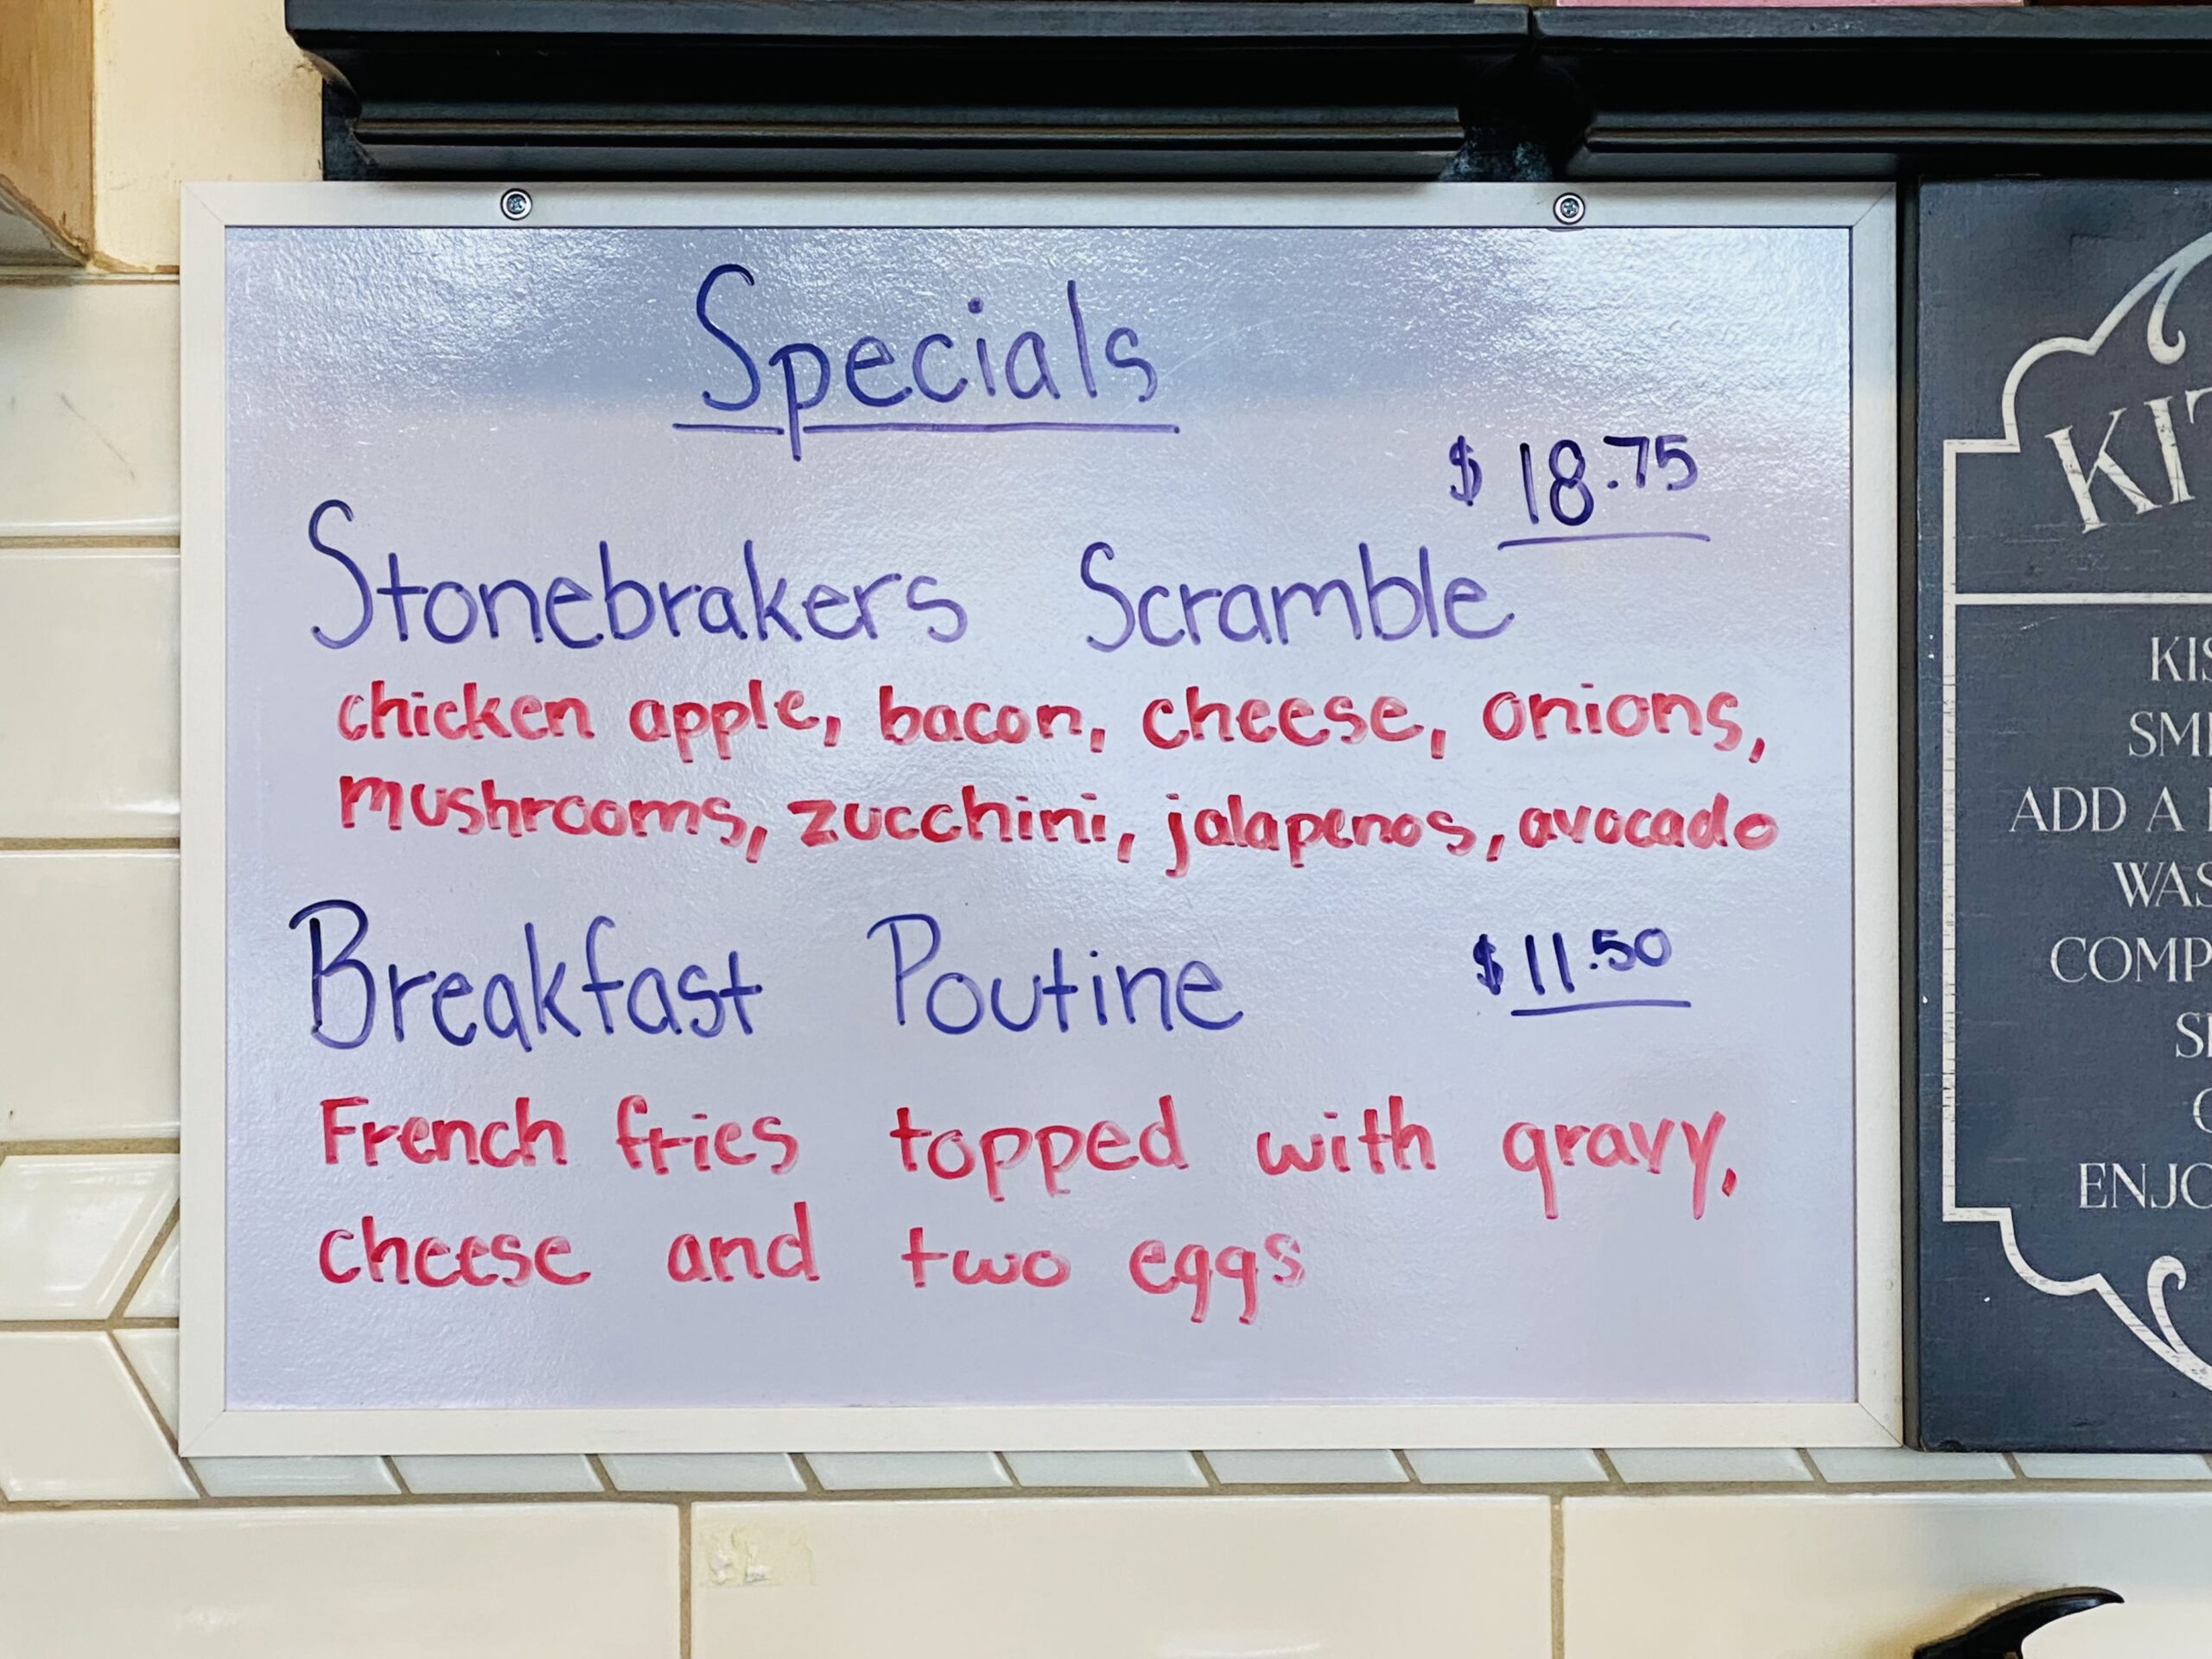 Specials
$ 18.75
Stonebrakers Scramble
chicken apple, bacon, cheese, onions,
mushrooms, zucchini, jalapenos, avocado
Breakfast Poutine $11.50
French fries topped with gravy,
cheese and two eggs
ADD A